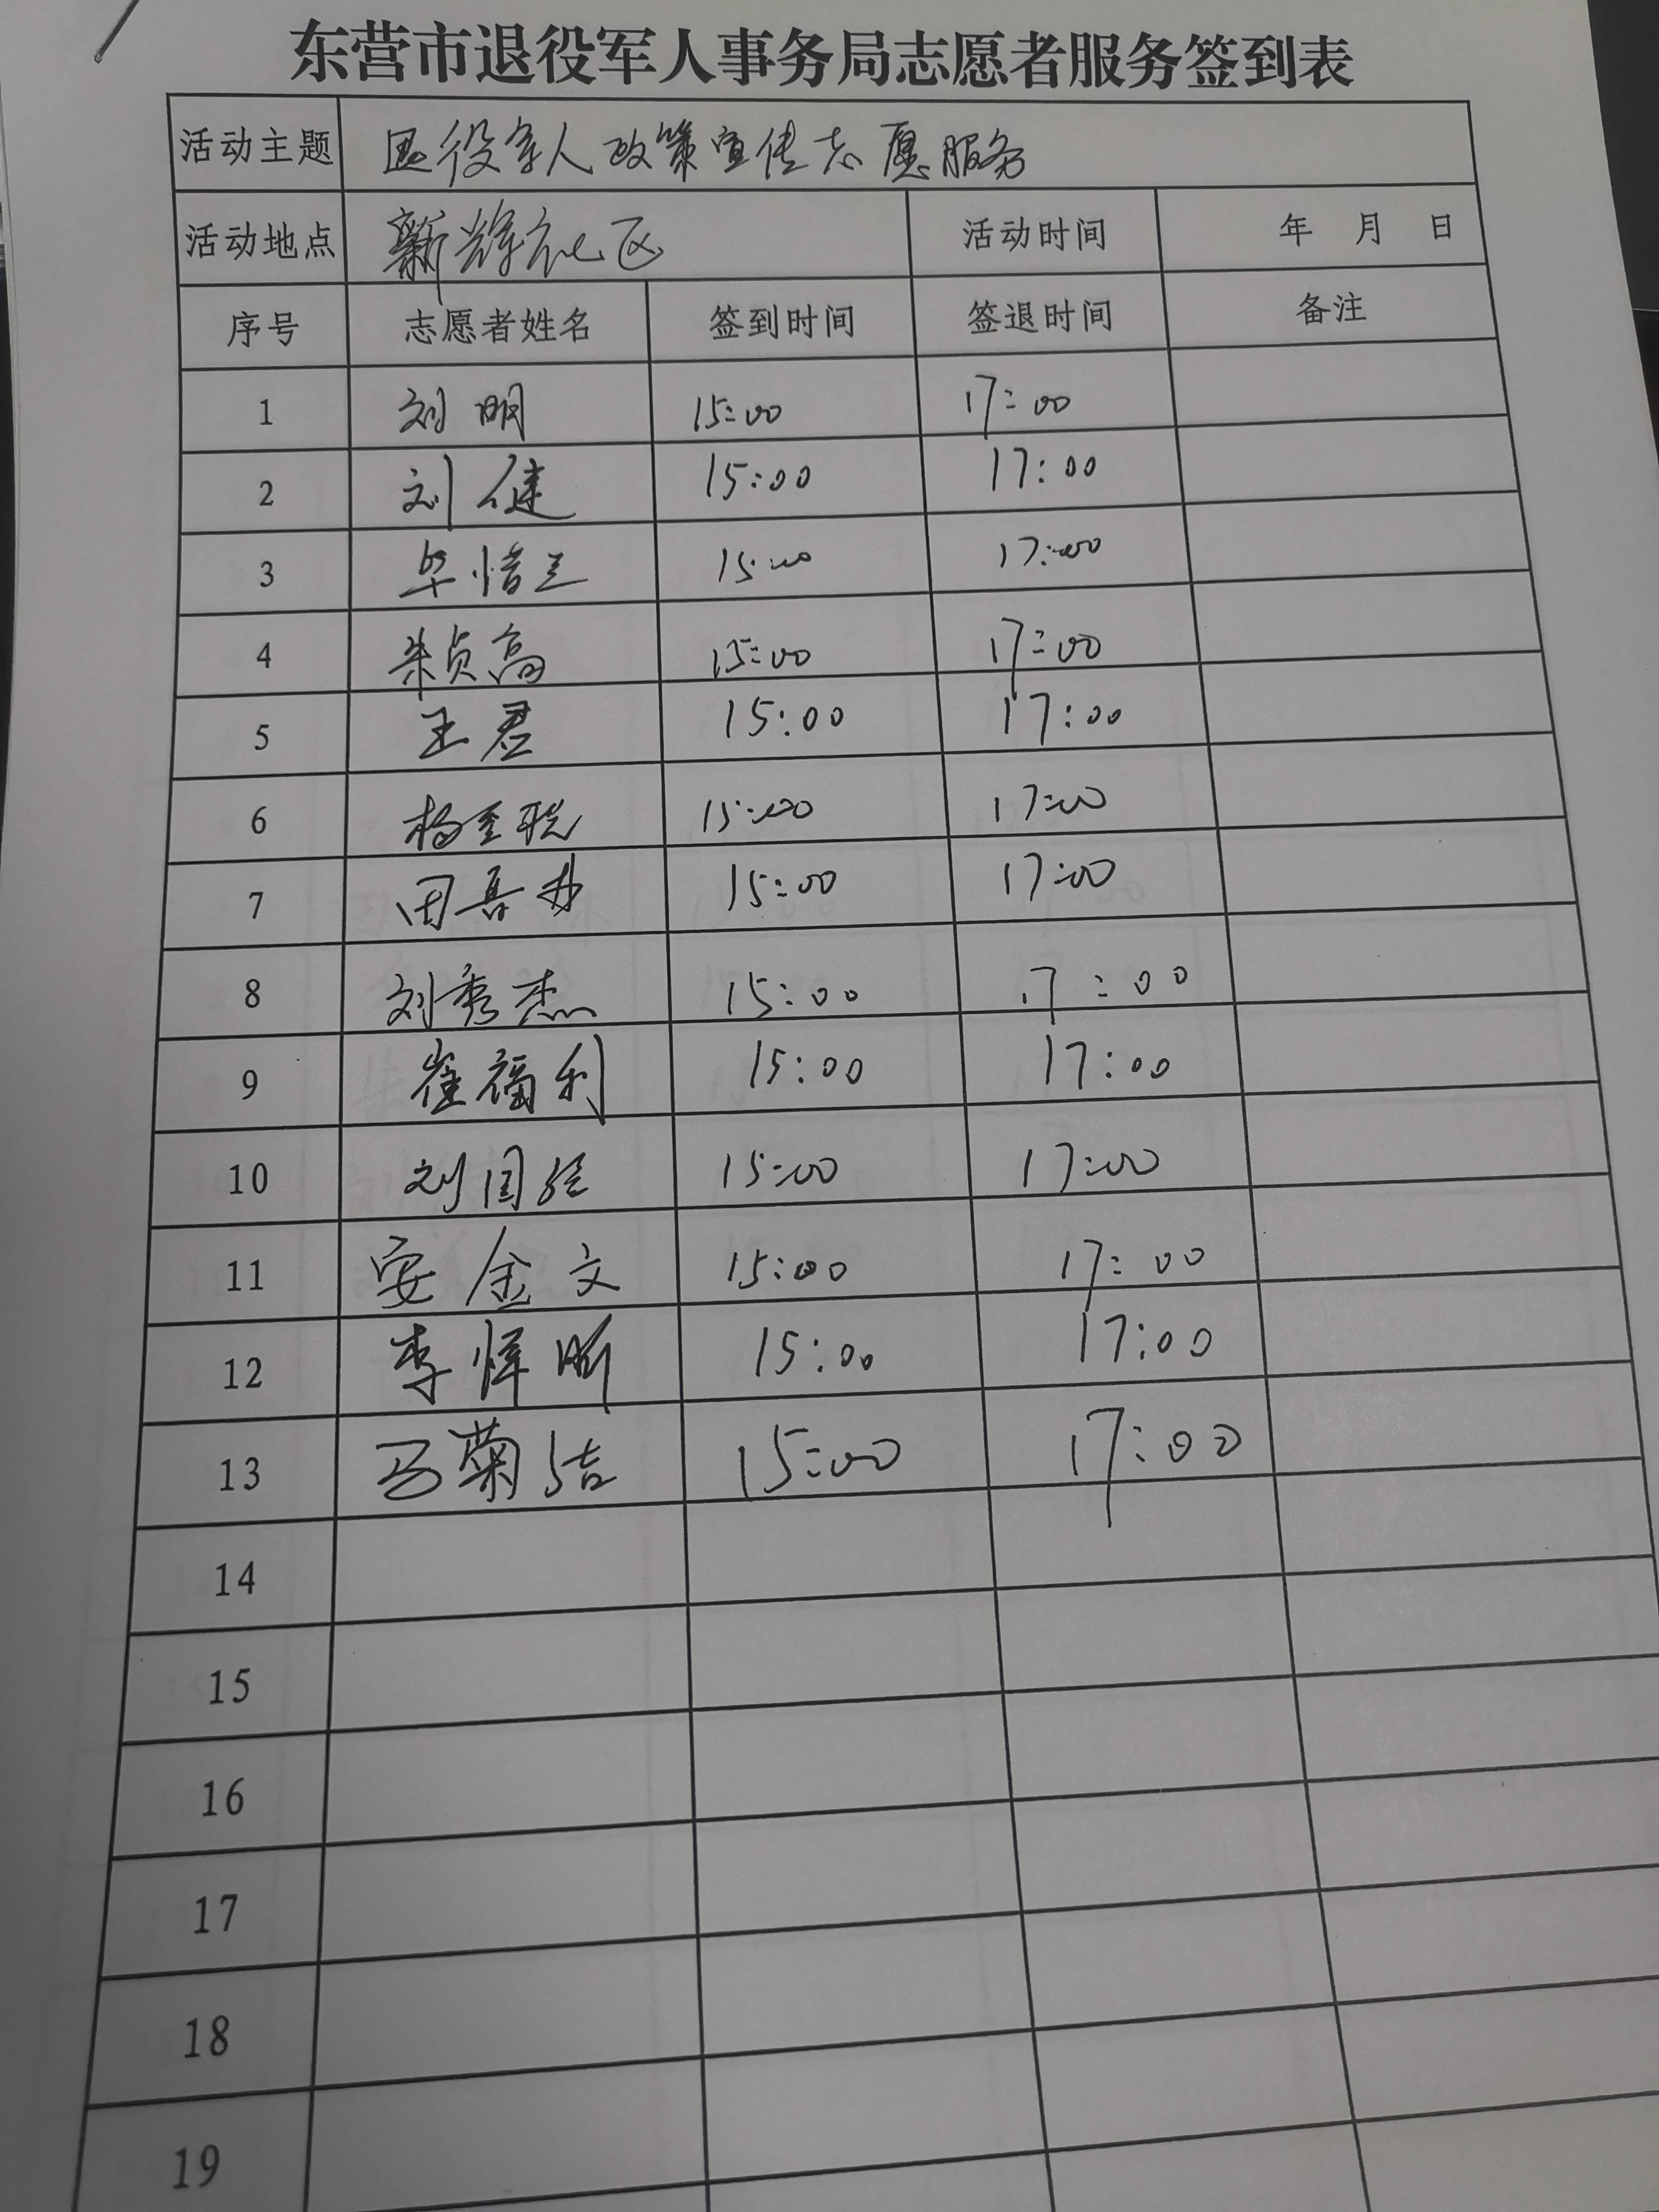 东营市退役军人事务局志愿者服务签到表
活动主题 退役军人政策宣传志愿服务
活动地点 新辉社区 活动时间 年 月 日
序号 志愿者姓名 签到时间 签退时间 备注
1 刘明 15:00 17:00
2 刘健 15:00 17:00
3 15:00 17:00
4 朱贞高 15:00 17:00
5 王君 15:00 17:00
6 15:00 17:00
7 15:00 17:00
8 刘秀杰 15:00 17:00
9 崔福利 15:00 17:00
10 刘国经 15:00 17:00
11 安金文 15:00 17:00
12 15:00 17:00
13 马菊洁 15:00 17:00
14
15
16
17
18
19